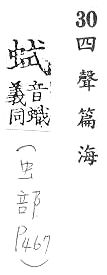 30 四聲篇海
音
義同
(虫部 P467)